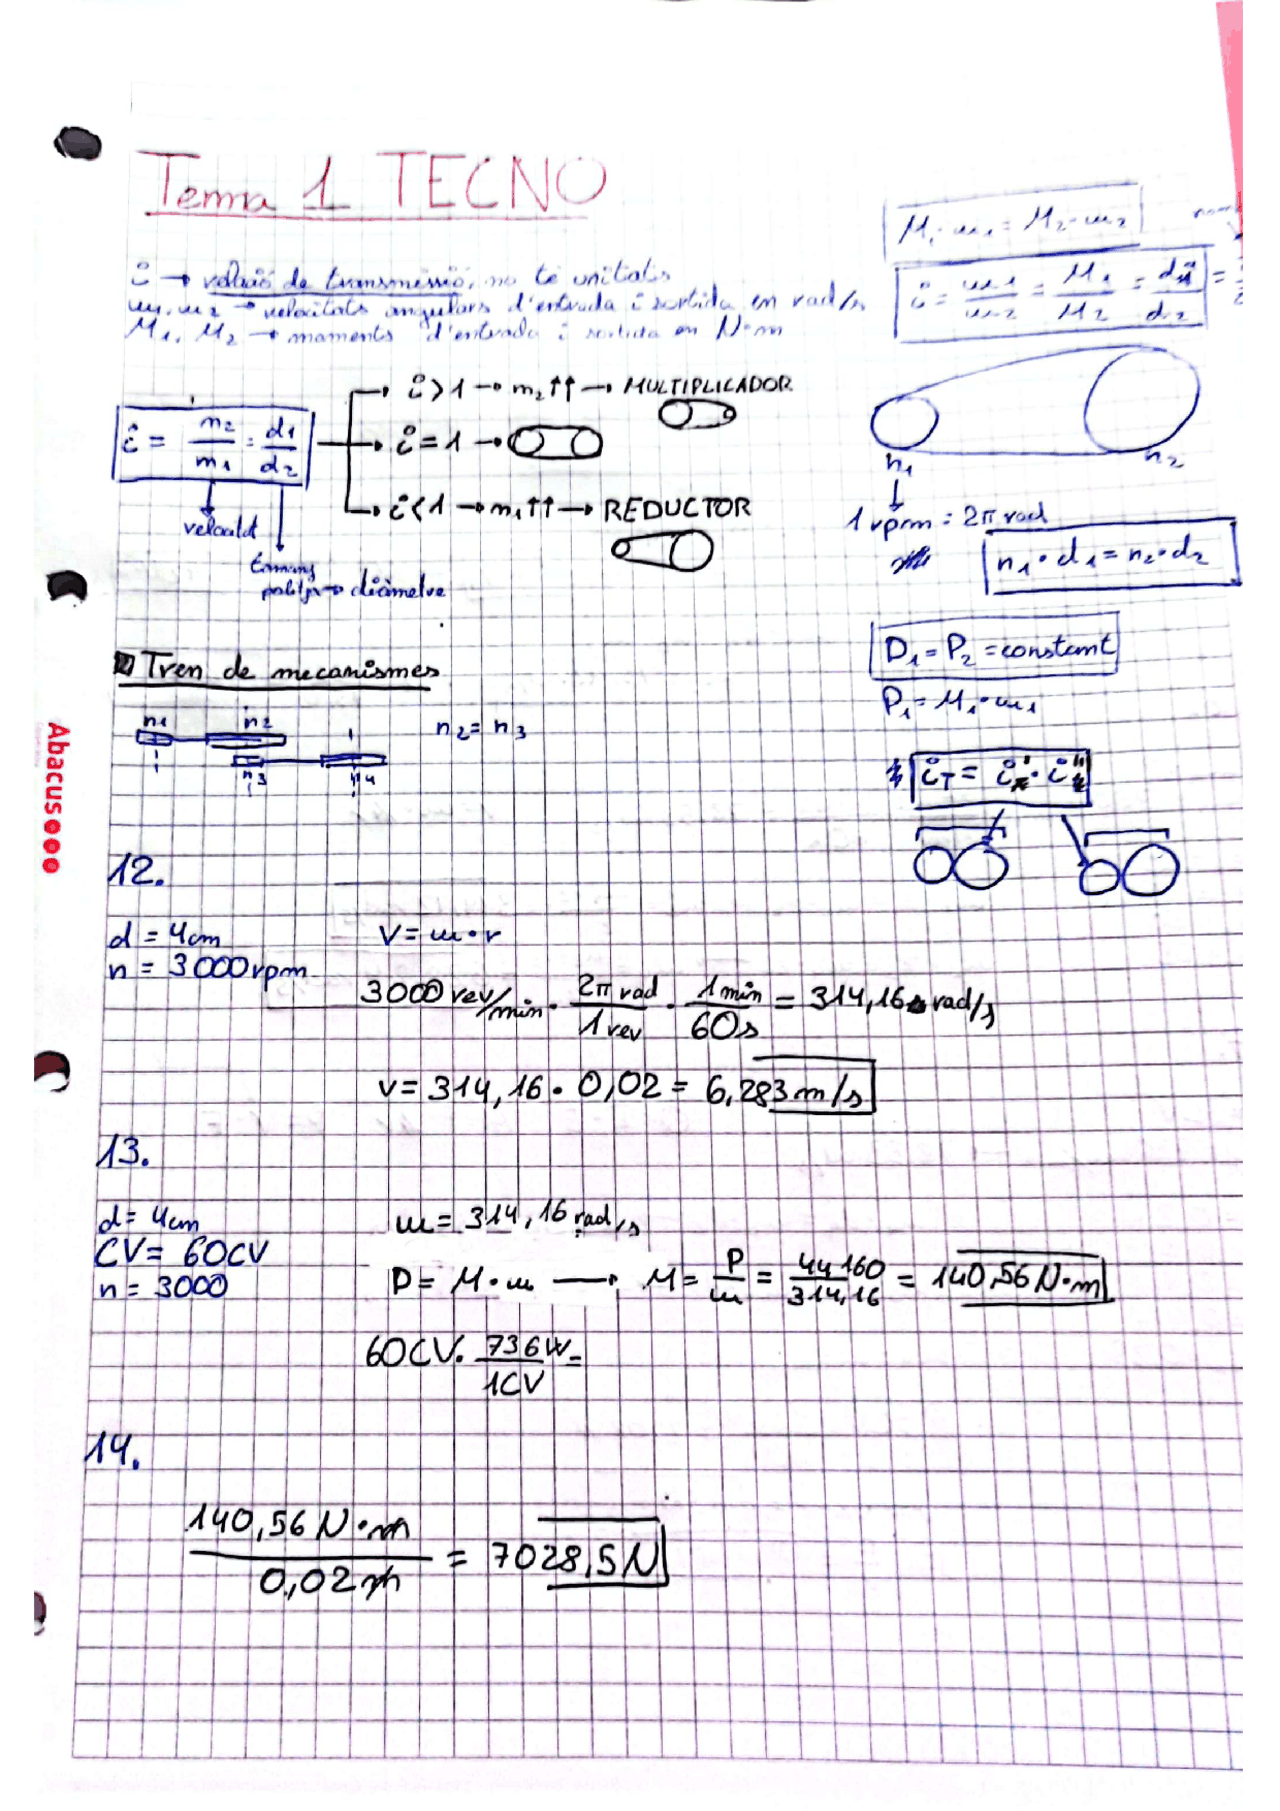 Tema 1 TECNO
M₁·ω₁ = M₂·ω₂
i → relació de transmissió, no té unitats
ω₁, ω₂ → velocitats angulars d'entrada i sortida en rad/s
M₁, M₂ → moments d'entrada i sortida en N·m
i = ω₁/ω₂ = M₁/M₂ = d₁/d₂ =
i = n₂/n₁ = d₁/d₂
velocitat
tamany politja → diàmetre
i > 1 → n₂↑↑ → MULTIPLICADOR
i = 1 →
i < 1 → n₁↑↑ → REDUCTOR
n₁ n₂
1 rpm = 2π rad
n₁·d₁ = n₂·d₂
P₁ = P₂ = constant
P₁ = M₁·ω₁
Tren de mecanismes
n₁ n₂
n₃ n₄
n₂ = n₃
i_T = i'·i''
Abacus
12.
d = 4cm
n = 3000rpm
V = ω·r
3000 rev/min · 2π rad/1 rev · 1 min/60s = 314,16 rad/s
v = 314,16 · 0,02 = 6,283 m/s
13.
d = 4cm
CV = 60CV
n = 3000
ω = 314,16 rad/s
P = M·ω → M = P/ω = 44160/314,16 = 140,56 N·m
60CV · 736W/1CV =
14.
140,56 N·m/0,02 m = 7028,5 N